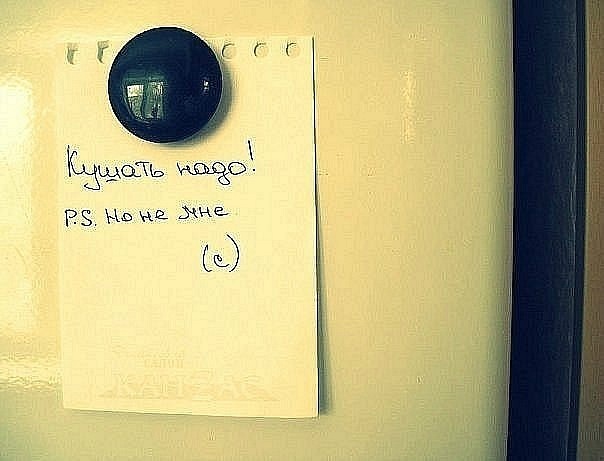 Кушать надо!
P.S. Но не мне
(с)
САЛОН
КАНZАС